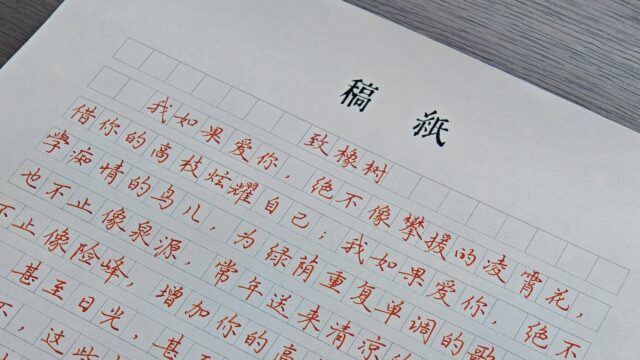 稿 紙
致橡树
我如果爱你，绝不像攀援的凌霄花，
借你的高枝炫耀自己；我如果爱你，绝不
學痴情的鸟儿，为绿荫重复单调的歌
也不止像泉源，常年送来清凉
不止像险峰，增加你的高
甚至日光，甚
不，这些